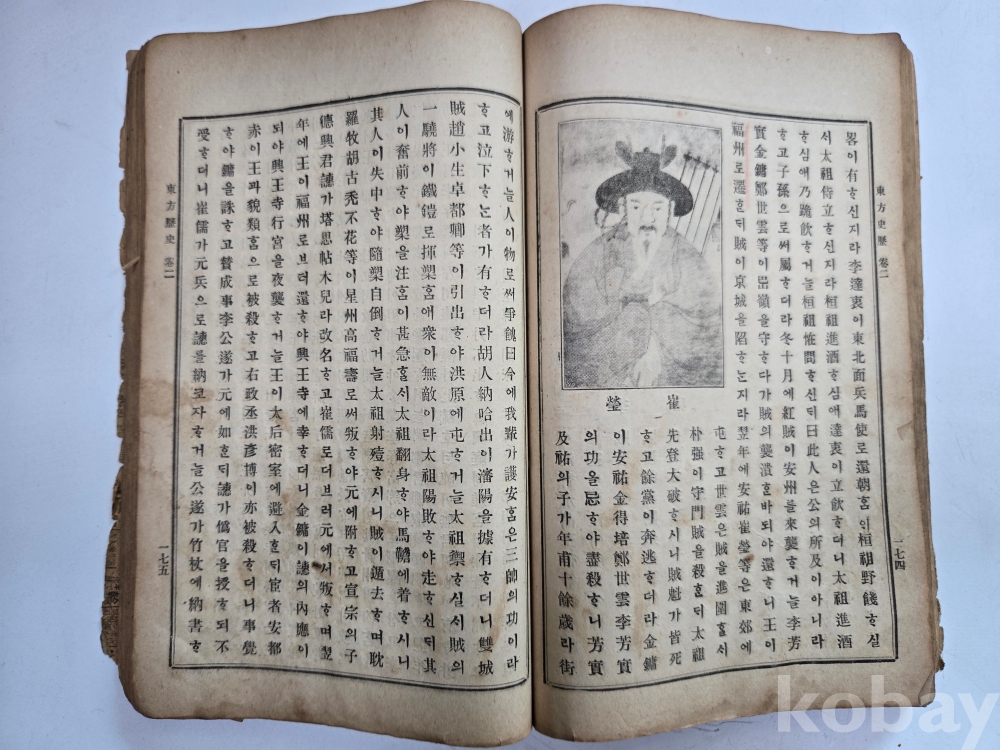 東方史歷 卷二
一七四
畧이有ᄒᆞ신지라李達衷이東北面兵馬使로還朝홈ᄋᆡ桓祖野餞ᄒᆞ실
서太祖侍立ᄒᆞ신지라桓祖進酒ᄒᆞ심애達衷이立飮ᄒᆞ더니太祖進酒
ᄒᆞ심애乃跪飮ᄒᆞ거늘桓祖恠問ᄒᆞ신ᄃᆡ曰此人은公의所及이아니라
ᄒᆞ고子孫으로써屬ᄒᆞ더라冬十月에紅賊이安州를來襲ᄒᆞ거늘李芳
實金鏞鄭世雲等이岊嶺을守ᄒᆞ다가賊의襲潰ᄒᆞᆫ바되야還ᄒᆞ니王이
福州로遷ᄒᆞᆫᄃᆡ賊이京城을陷ᄒᆞᄂᆞᆫ지라翌年에安祐崔瑩等은東郊에
崔瑩
屯ᄒᆞ고世雲은賊을進圍ᄒᆞᆯ서
朴强이守門賊을殺ᄒᆞᆫᄃᆡ太祖
先登大破ᄒᆞ시니賊魁가皆死
ᄒᆞ고餘黨이奔逃ᄒᆞ더라金鏞
이安祐金得培鄭世雲李芳實
의功을忌ᄒᆞ야盡殺ᄒᆞ니芳實
及祐의子가年甫十餘歲라街
에游ᄒᆞ거늘人이物로써爭餽曰今에我輩가護安홈은三帥의功이라
ᄒᆞ고泣下ᄒᆞᄂᆞᆫ者가有ᄒᆞ더라胡人納哈出이瀋陽을據有ᄒᆞ더니雙城
賊趙小生卓都卿等이引出ᄒᆞ야洪原에屯ᄒᆞ거늘太祖禦ᄒᆞ실서賊의
一驍將이鐵鎧로揮槊홈애衆이無敵이라太祖陽敗ᄒᆞ야走ᄒᆞ신ᄃᆡ其
人이奮前ᄒᆞ야槊을注홈이甚急ᄒᆞᆯ서太祖翻身ᄒᆞ야馬韂에着ᄒᆞ시니
其人이失中ᄒᆞ야隨槊自倒ᄒᆞ거늘太祖射殪ᄒᆞ시니賊이遁去ᄒᆞ며耽
羅牧胡古禿不花等이星州高福壽로써叛ᄒᆞ야元에附ᄒᆞ고宣宗의子
德興君譓가塔思帖木兒라改名ᄒᆞ고崔儒로더브러元에서叛ᄒᆞ며翌
年에王이福州로브터還ᄒᆞ야興王寺에幸ᄒᆞ더니金鏞이譓의內應이
되야興王寺行宮을夜襲ᄒᆞ거늘王이太后密室에避入ᄒᆞᆫᄃᆡ宦者安都
赤이王과貌類홈으로被殺ᄒᆞ고右政丞洪彥博이亦被殺ᄒᆞ더니事覺
ᄒᆞ야鏞을誅ᄒᆞ고贊成事李公遂가元에如ᄒᆞᆫᄃᆡ譓가僞官을授ᄒᆞᄃᆡ不
受ᄒᆞ더니崔儒가元兵으로譓를納코자ᄒᆞ거늘公遂가竹杖에納書ᄒᆞ
東方歷史 卷二
一七五
kobay